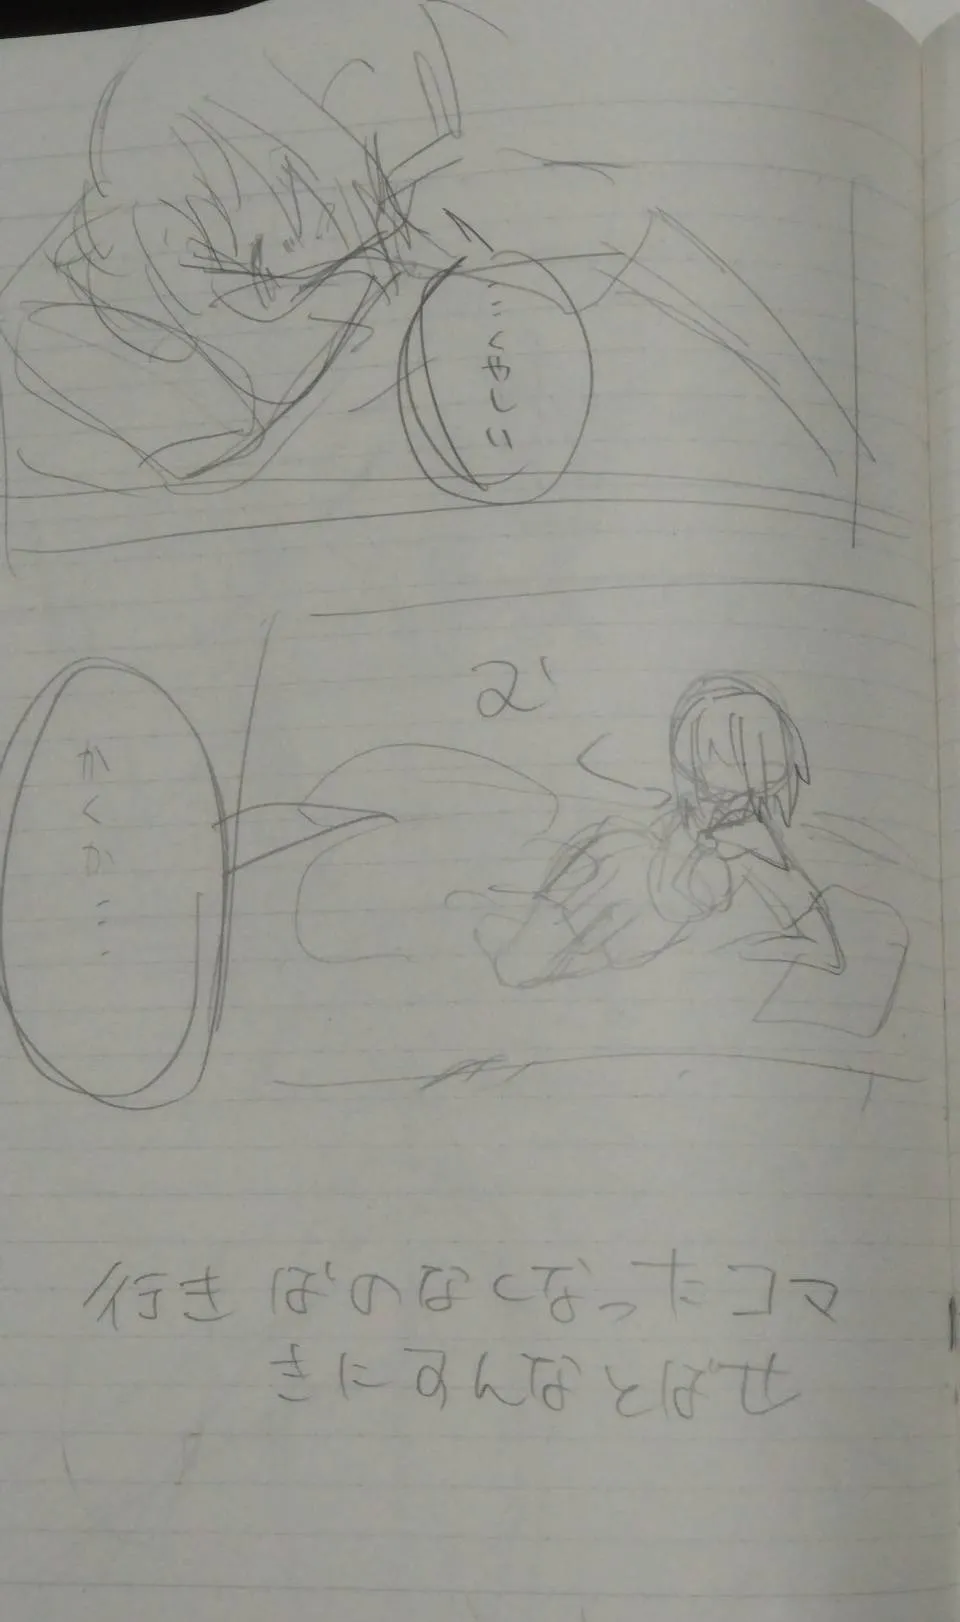 …くやしい
かくか……
行きばのなくなったコマ
きにすんなとばせ